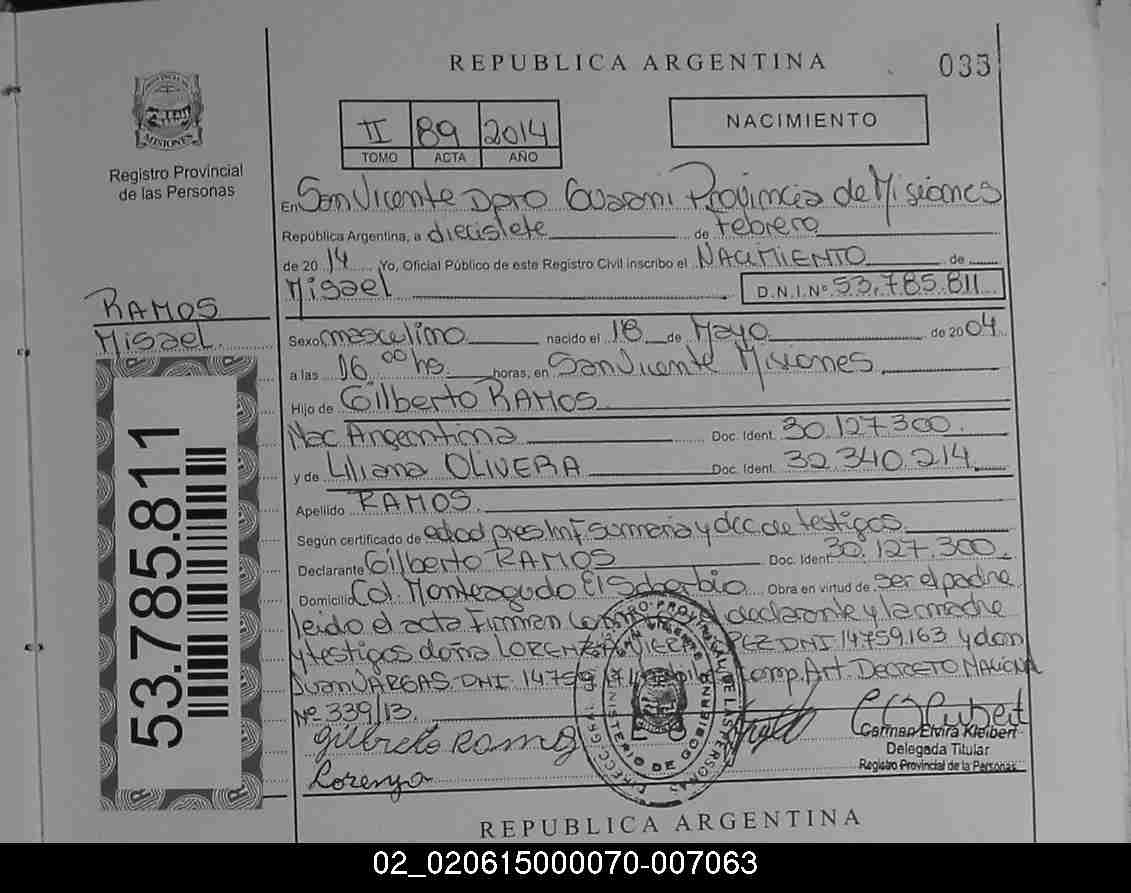 REPUBLICA ARGENTINA
035
PROVINCIA DE
MISIONES
Registro Provincial
de las Personas
II 89 2014
TOMO ACTA AÑO
NACIMIENTO
En San Vicente Dpto Guarani Provincia de Misiones
República Argentina, a diecisiete de Febrero
de 2014 Yo, Oficial Público de este Registro Civil inscribo el NACIMIENTO de
Misael D.N.I.Nº 53.785.811
RAMOS
Misael
Sexo masculino nacido el 18 de Mayo de 2004
a las 16 00 hs. horas, en San Vicente Misiones
Hijo de Gilberto RAMOS
Nac Argentina Doc. Ident. 30.127.300
y de Liliana OLIVERA Doc. Ident. 32.340.214
Apellido RAMOS
Según certificado de edad pres Inf. sumaria y dcc de testigos
Declarante Gilberto RAMOS Doc. Ident 30.127.300
Domicilio Col. Monteagudo El Soberbio Obra en virtud de ser el padre
leido el acta Firman declarante y la madre
y testigos doña DNI 14.759.163 y don
Juan VARGAS DNI. 14759 Art. DECRETO NACIONAL
Nº 339/13.
Gilberto Ramos
Lorenza
Carmen Elvira Kleibert
Delegada Titular
Registro Provincial de la Personas
53.785.811
REPUBLICA ARGENTINA
02_020615000070-007063